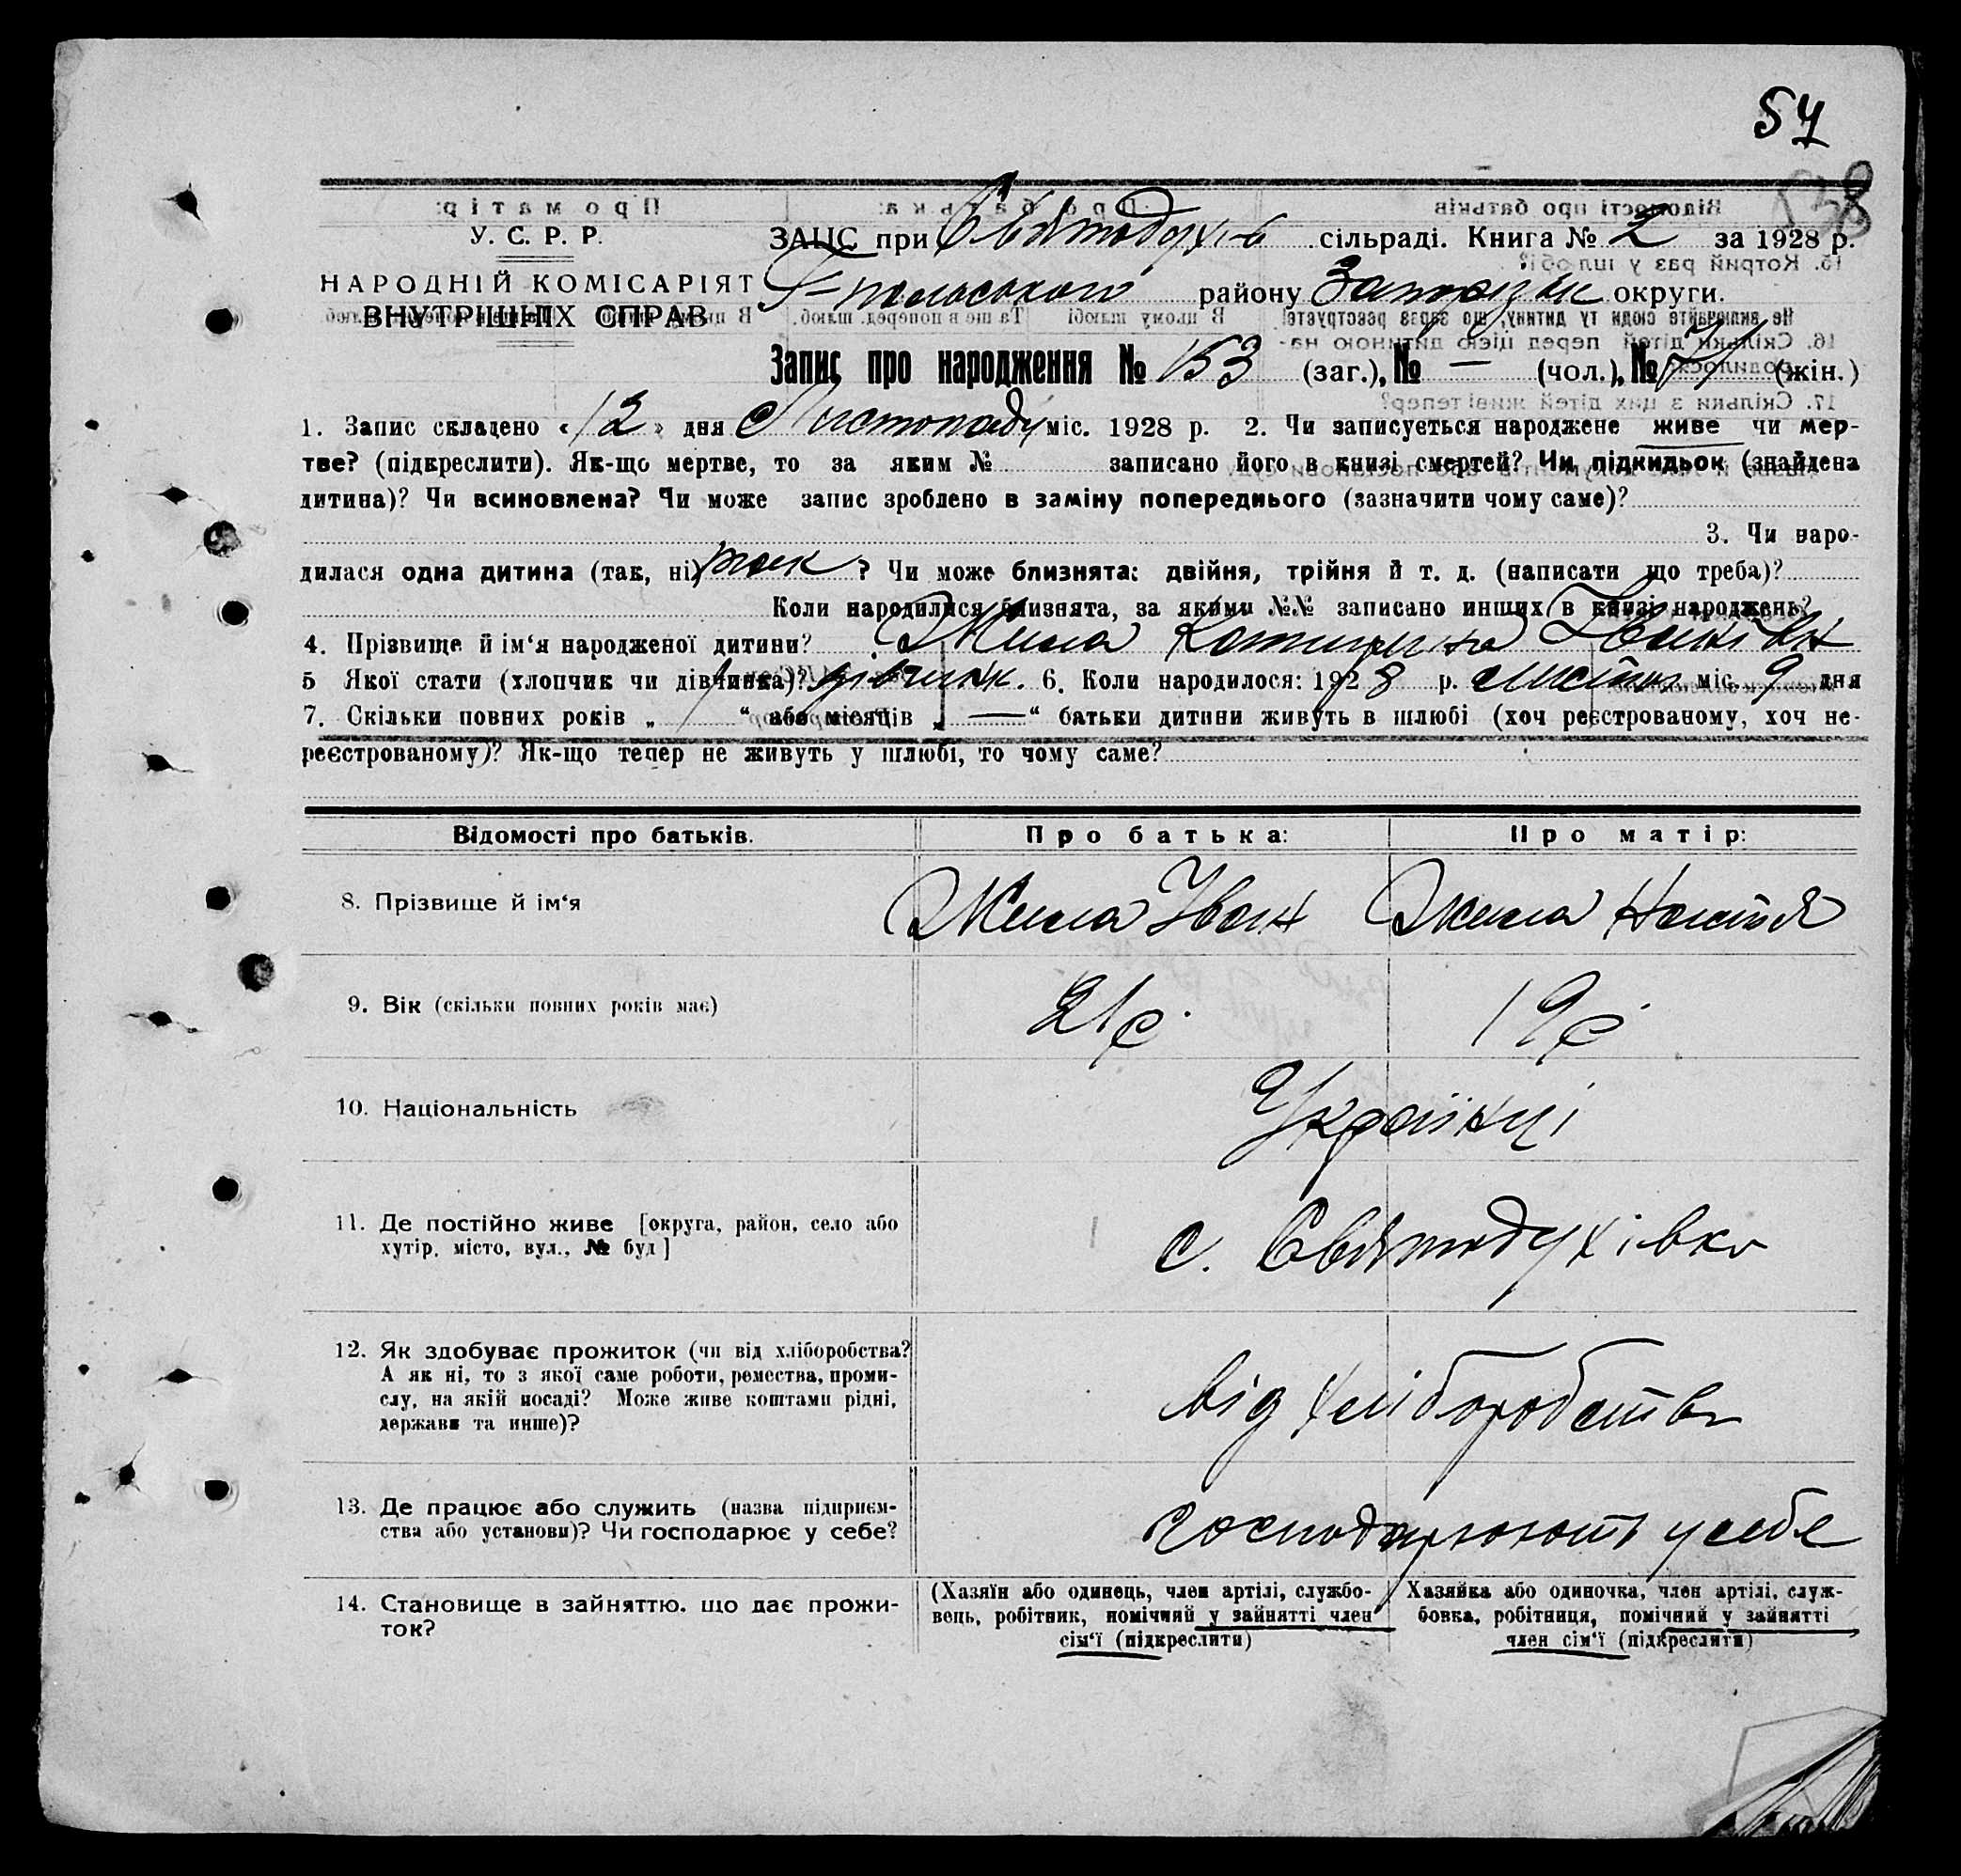 57
138
У. С. Р. Р.
НАРОДНІЙ КОМІСАРІЯТ
ВНУТРІШНІХ СПРАВ
ЗАЦС при Святодухів сільраді. Книга № 2 за 1928 р.
району Запорізьк округи.
Запис про народження № 153 (заг.), № — (чол.), № 71 (жін.)
1. Запис складено « 12 » дня Листопаду міс. 1928 р. 2. Чи записується народжене живе чи мер-
тве? (підкреслити). Як-що мертве, то за яким № записано його в книзі смертей? Чи підкидьок (знайдена
дитина)? Чи всиновлена? Чи може запис зроблено в заміну попереднього (зазначити чому саме)?
3. Чи наро-
дилася одна дитина (так, ні) так ? Чи може близнята: двійня, трійня й т. д. (написати що треба)?
Коли народилися близнята, за якими №№ записано инших в книзі народжень?
4. Прізвище й ім'я народженої дитини? Жила Катирина Іванівн
5 Якої стати (хлопчик чи дівчинка)? дівчинк. 6. Коли народилося: 1928 р. листоп міс. 9 дня
7. Скільки повних років „ 1 “ або місяців „ — “ батьки дитини живуть в шлюбі (хоч реєстрованому, хоч не-
реєстрованому)? Як-що тепер не живуть у шлюбі, то чому саме?
Відомості про батьків. Про батька: Про матір:
8. Прізвище й ім'я Жила Іван Жила Настя
9. Вік (скільки повних років має) 21 р. 19 р.
10. Національність Українці
11. Де постійно живе [округа, район, село або
хутір, місто, вул., № буд] с. Святодухівка
12. Як здобуває прожиток (чи від хліборобства?
А як ні, то з якої саме роботи, ремества, проми-
слу, на якій посаді? Може живе коштами рідні,
держави та инше)? від хліборобства
13. Де працює або служить (назва підприєм-
ства або установи)? Чи господарює у себе? господарюють у себе
14. Становище в зайняттю, що дає прожи-
ток?
(Хазяїн або одинець, член артілі, службо-
вець, робітник, помічний у зайнятті член
сім'ї (підкреслити)
Хазяйка або одиночка, член артілі, служ-
бовка, робітниця, помічний у зайнятті
член сім'ї (підкреслити)